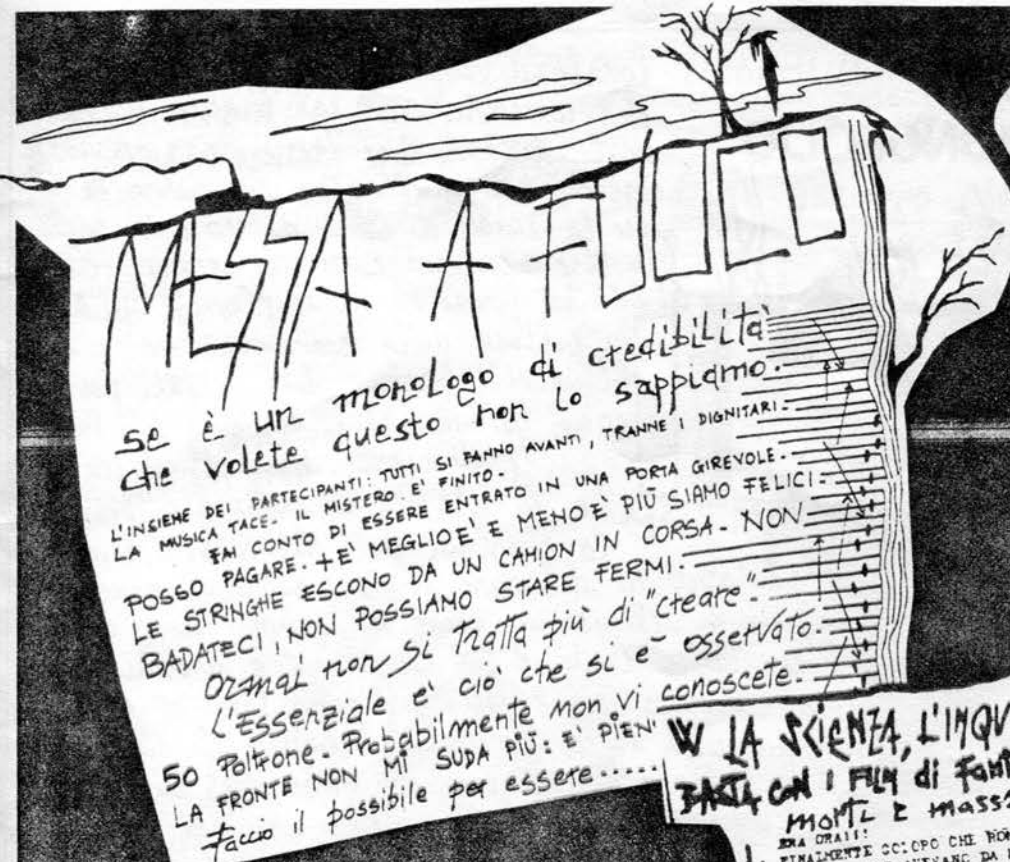 MESSA A FUOCO
se è un monologo di credibilità
che volete questo non lo sappiamo.
L'INSIEME DEI PARTECIPANTI: TUTTI SI FANNO AVANTI, TRANNE I DIGNITARI.
LA MUSICA TACE. IL MISTERO E' FINITO.
FAI CONTO DI ESSERE ENTRATO IN UNA PORTA GIREVOLE.
POSSO PAGARE. + E' MEGLIO E' E MENO E' PIÙ SIAMO FELICI.
LE STRINGHE ESCONO DA UN CAMION IN CORSA. NON
BADATECI, NON POSSIAMO STARE FERMI.
Ormai non si tratta più di "creare".
L'Essenziale e' ciò che si è osservato.
50 Poltrone. Probabilmente non vi conoscete.
LA FRONTE NON MI SUDA PIÙ: E' PIEN'
Faccio il possibile per essere.....
W LA SCIENZA, L'INQU
BASTA CON I FILM di FANT
morti e mass
ERA ORA!!!
FINALMENTE CHE
DA